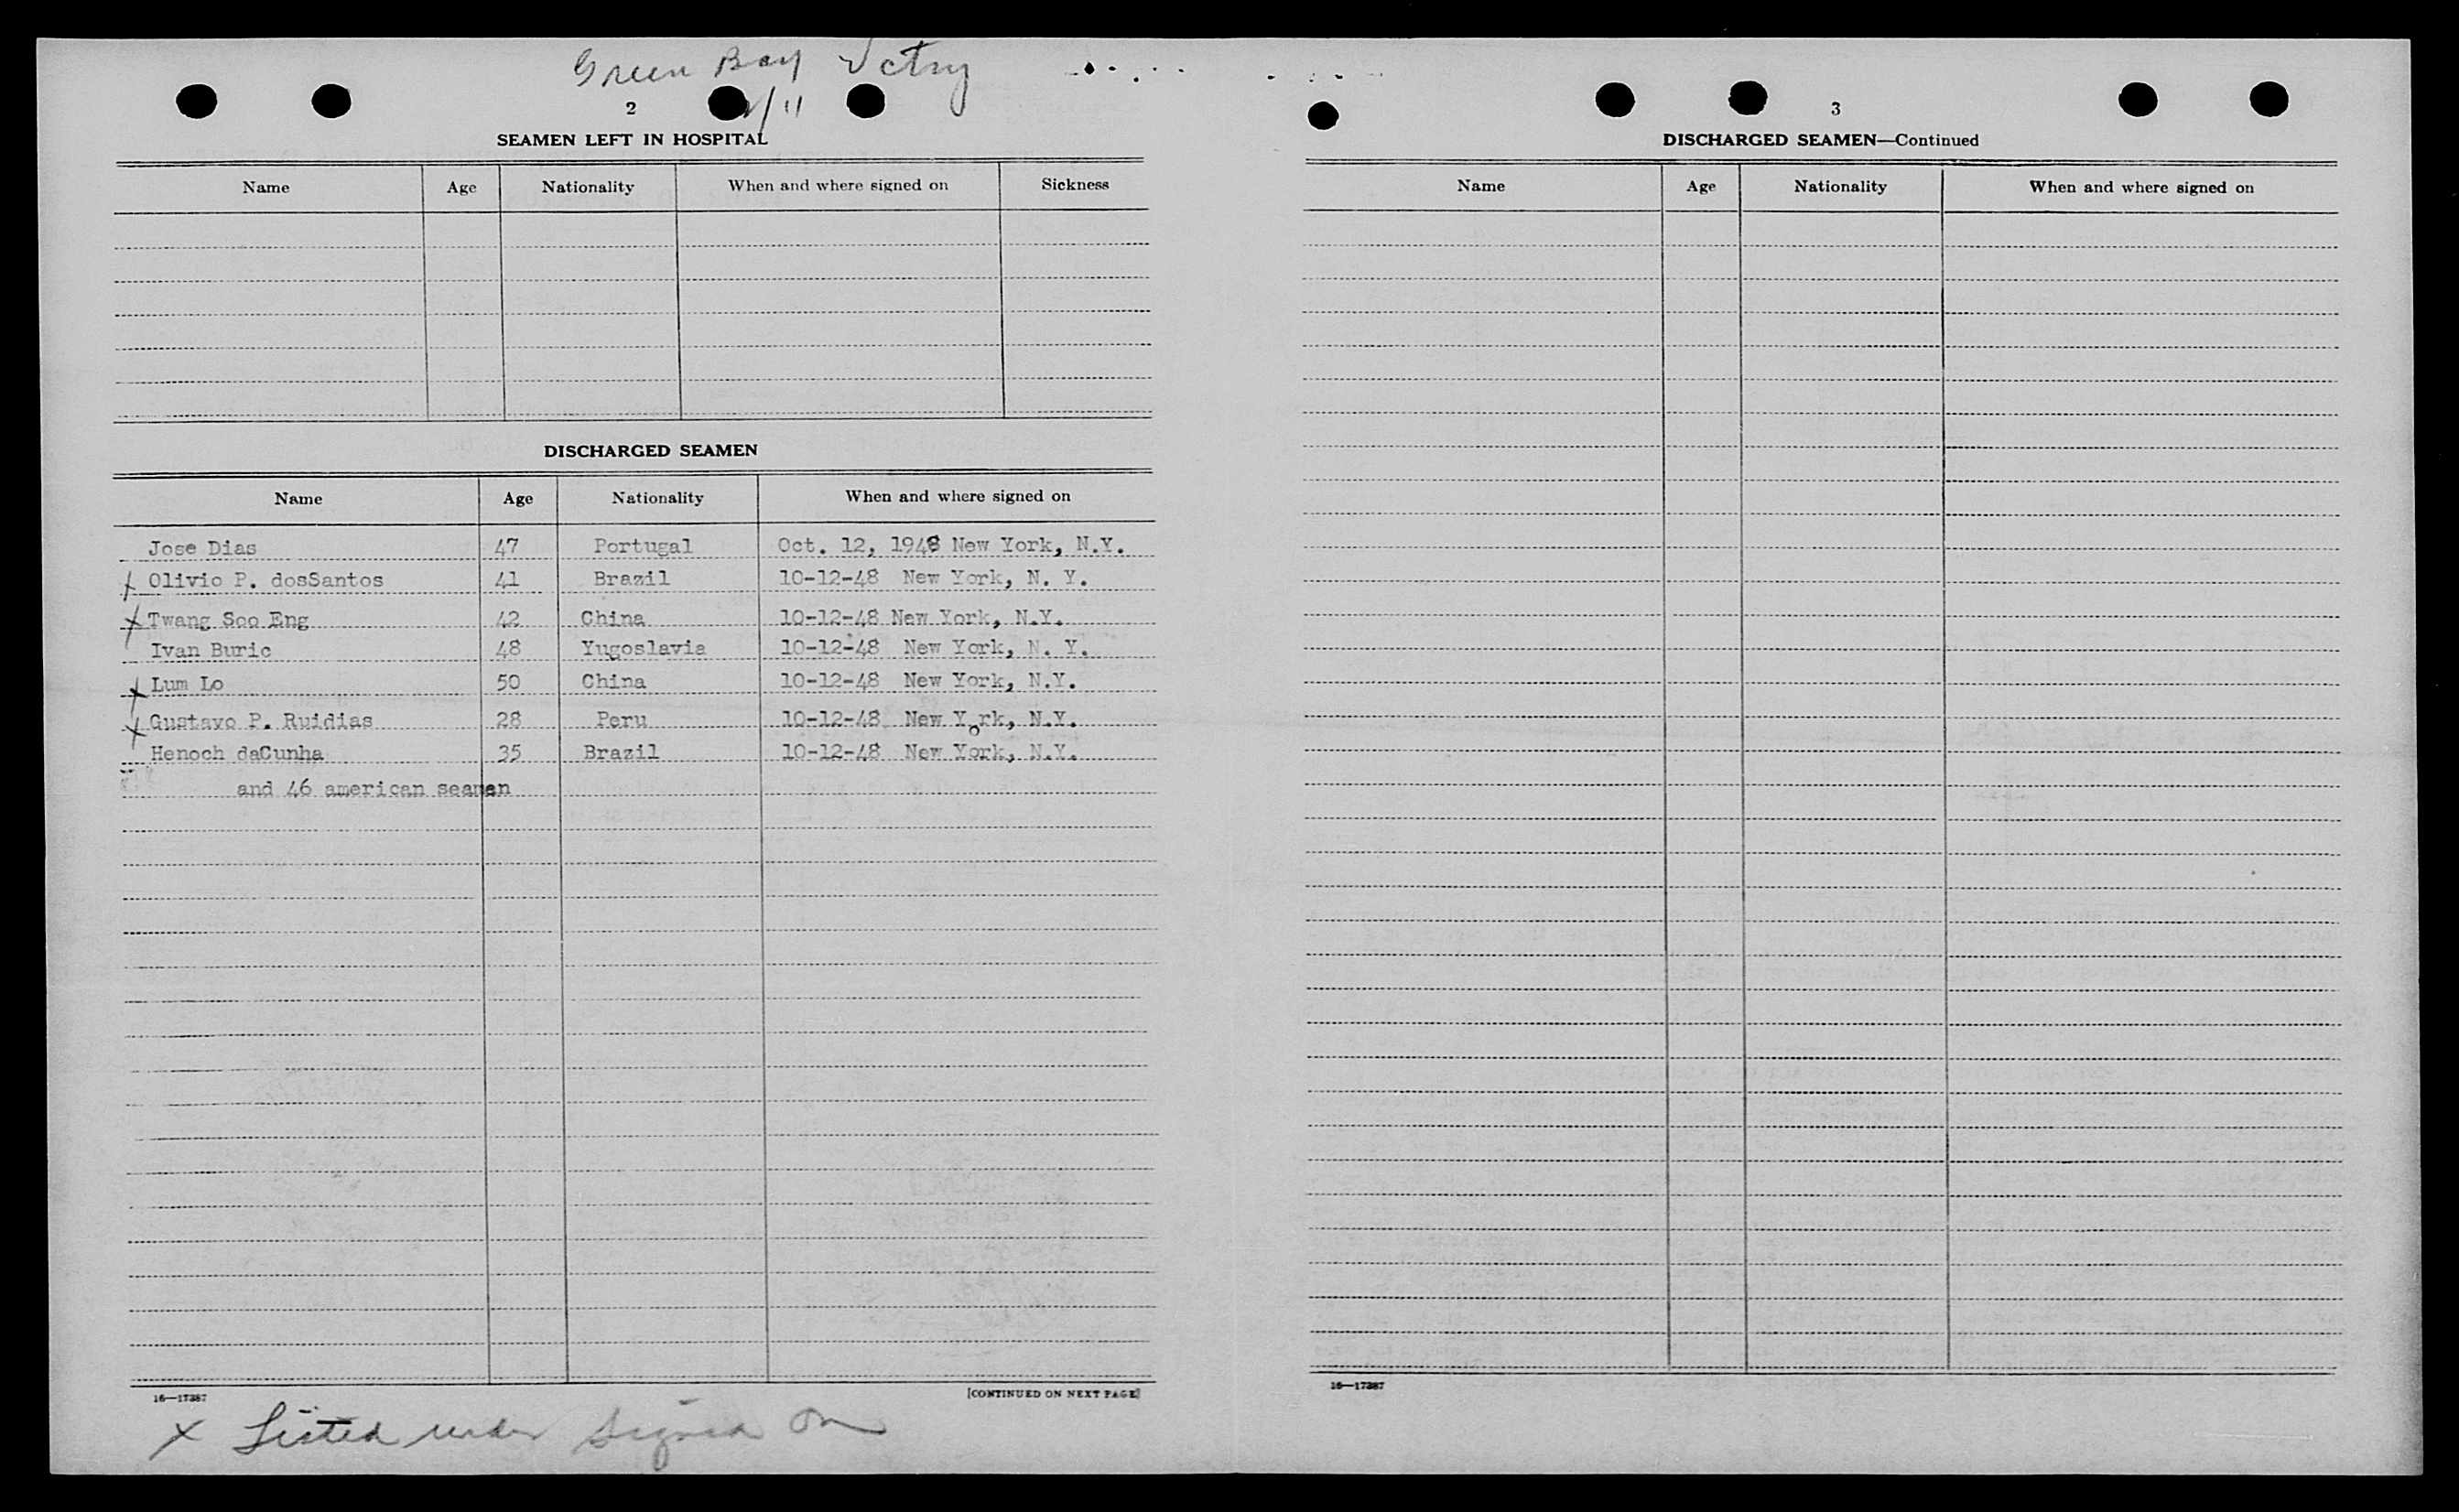 Green Bay Vctry
2
/11
SEAMEN LEFT IN HOSPITAL
Name Age Nationality When and where signed on Sickness
DISCHARGED SEAMEN
Name Age Nationality When and where signed on
Jose Dias 47 Portugal Oct. 12, 1948 New York, N.Y.
x Olivio P. dosSantos 41 Brazil 10-12-48 New York, N. Y.
x Twang Soo Eng 42 China 10-12-48 New York, N.Y.
Ivan Buric 48 Yugoslavia 10-12-48 New York, N. Y.
x Lum Lo 50 China 10-12-48 New York, N.Y.
x Gustavo P. Ruidias 28 Peru 10-12-48 New York, N.Y.
Henoch daCunha 35 Brazil 10-12-48 New York, N.Y.
and 46 american seamen
16—17387 [CONTINUED ON NEXT PAGE]
x Listed under Signed On
3
DISCHARGED SEAMEN—Continued
Name Age Nationality When and where signed on
16—17387